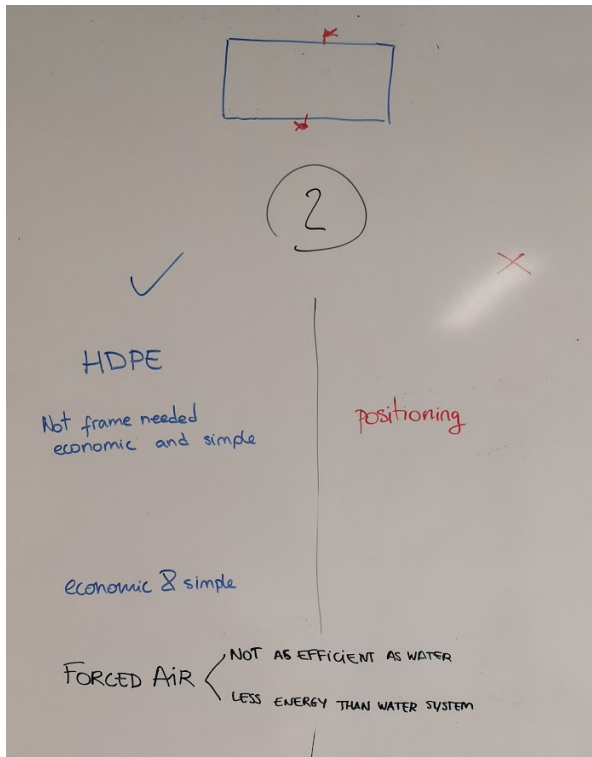 2
HDPE
Not frame needed
economic and simple
positioning
economic & simple
NOT AS EFFICIENT AS WATER
FORCED AIR
LESS ENERGY THAN WATER SYSTEM